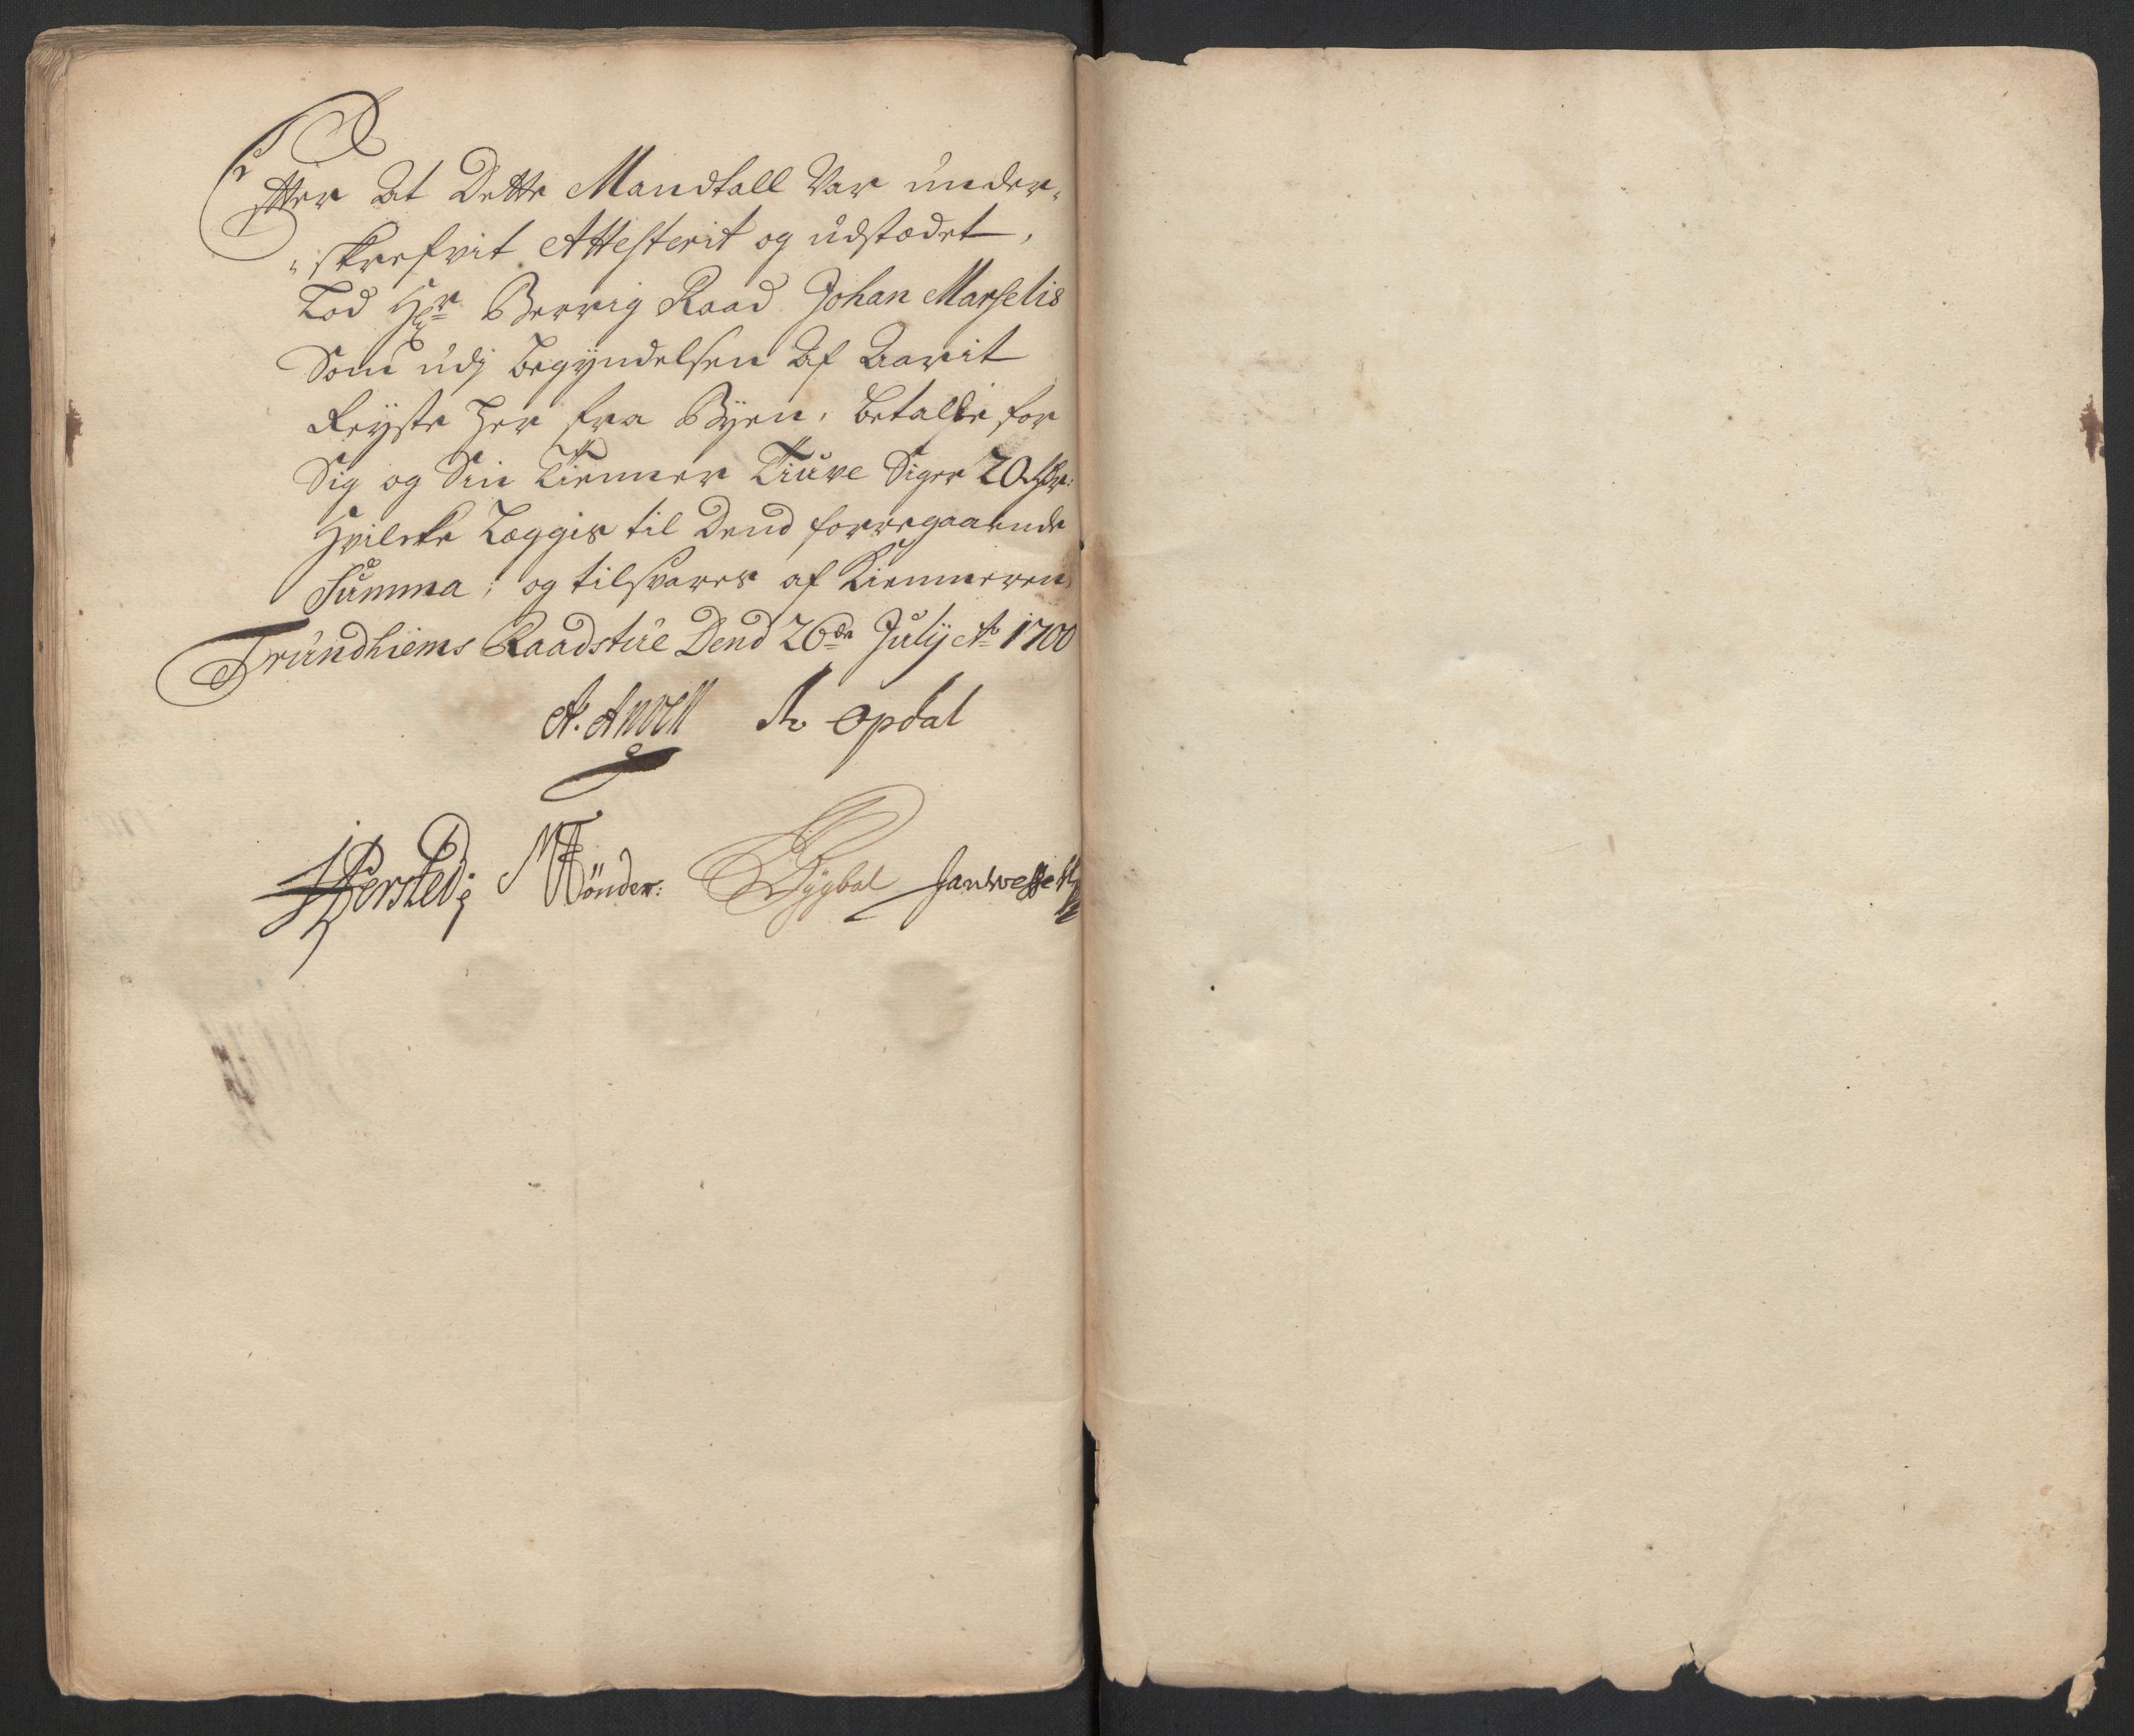 Efter At Dette Mandtall Var under„
„skrefvit Attesterit og udstædet,
Lod Hr Berrig Raad Johan Marselis
Som udj Begyndelsen Af Aarit
Reyste her fra Byen, betalle for
Sig og Sin Tienner Tiuve Siger 20
Hvilcke Leggis til Dend forregaaende
Summa; og tilsvares af Kiemneren
Trundhiems Raadstue Dend 26de July Ao 1700
A. Opdal
Tönder: